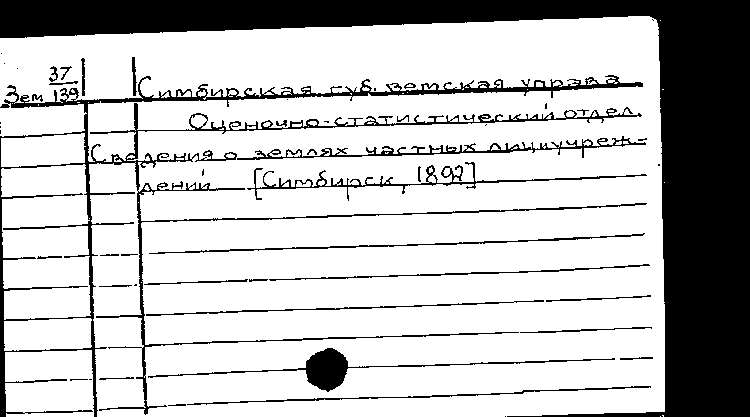 37
Зем 139
Симбирская губ. земская управа
Оценочно-статистический отдел.
Сведения о землях частных лиц и учреж-
дений [Симбирск, 1892]